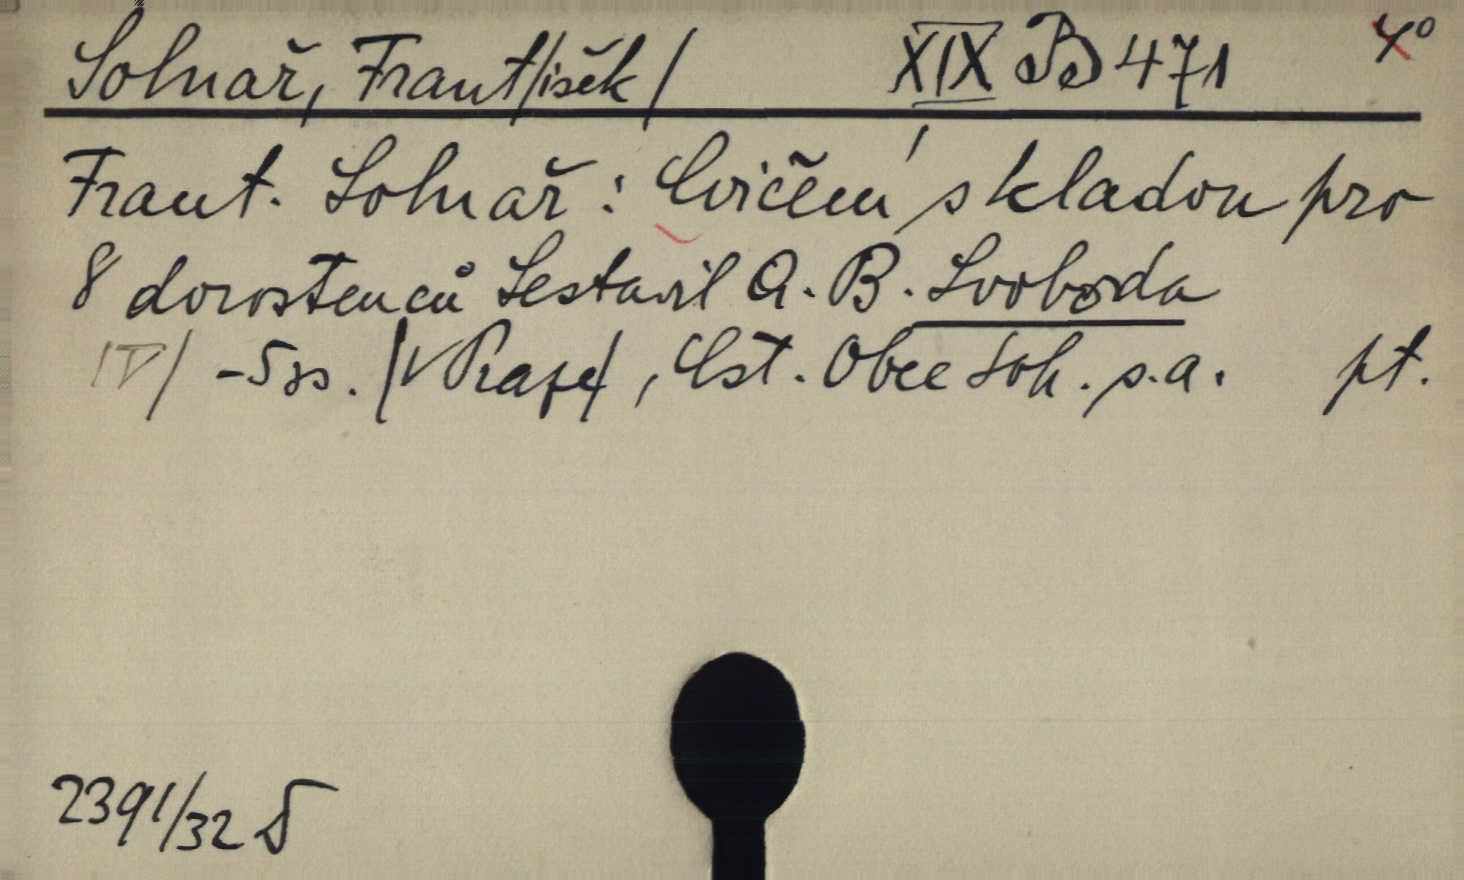 Solnař, Frant/išek/ XIX B 471 4°
Frant. Solnař: Cvičení s kladou pro
8 dorostenců Sestavil A. B. Svoboda
IV/ -5 ss. /V Praze/, Čst. Obec Sok. s.a. pt.
2391/32